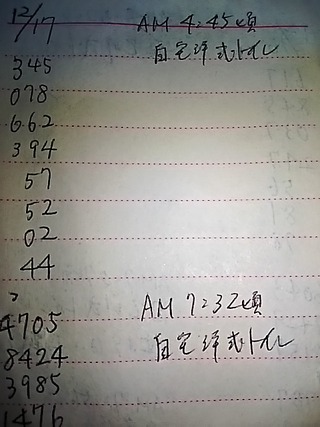 12/17 AM 4:45頃
自宅洋式トイレ
345
078
662
394
57
52
02
44
〃
4705 AM 7:32頃
8424 自宅洋式トイレ
3985
1476